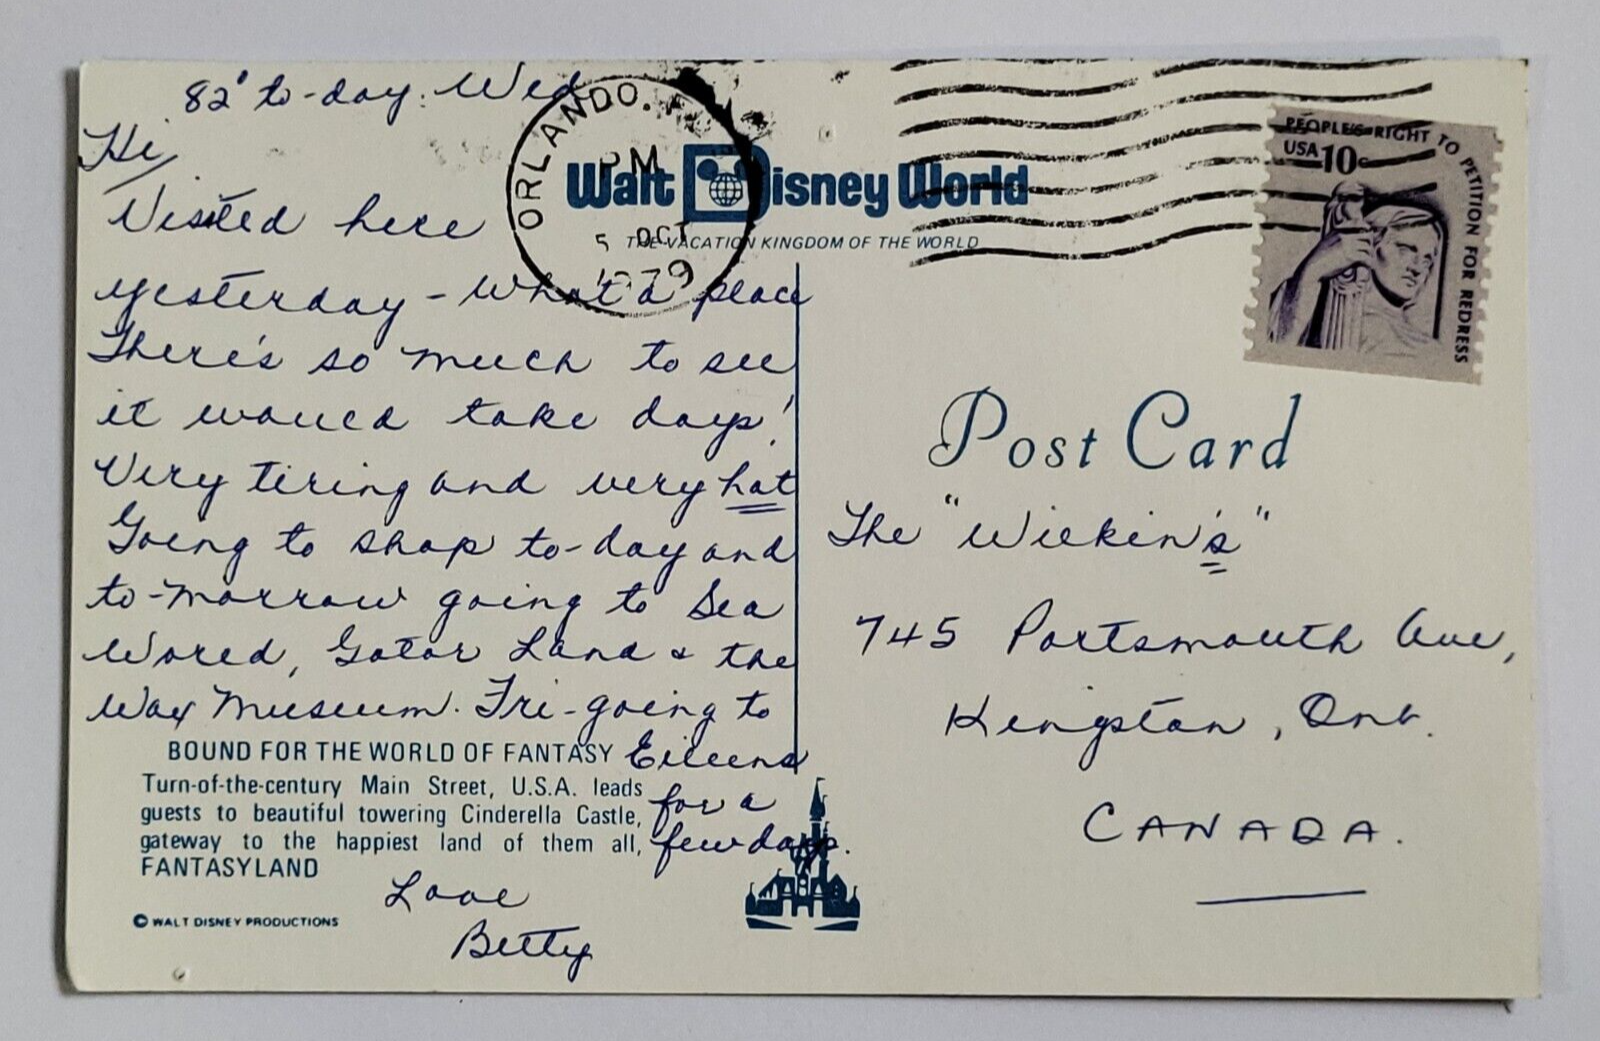 82° to-day. Wed.
Hi,
Visited here
yesterday - What a place
There's so much to see
it would take days!
Very tiring and very hot
Going to shop to-day and
to-morrow going to Sea
World, Gator Land & the
Wax Museum. Fri-going to
Eileens
for a
few days.
Love
Betty
BOUND FOR THE WORLD OF FANTASY
Turn-of-the-century Main Street, U.S.A. leads
guests to beautiful towering Cinderella Castle,
gateway to the happiest land of them all,
FANTASYLAND
© WALT DISNEY PRODUCTIONS
ORLANDO.
PM
5 OCT
1979
Walt Disney World
THE VACATION KINGDOM OF THE WORLD
PEOPLE'S RIGHT TO PETITION FOR REDRESS
USA 10c
Post Card
The "Wilkin's"
745 Portsmouth Ave,
Kingston, Ont.
CANADA.